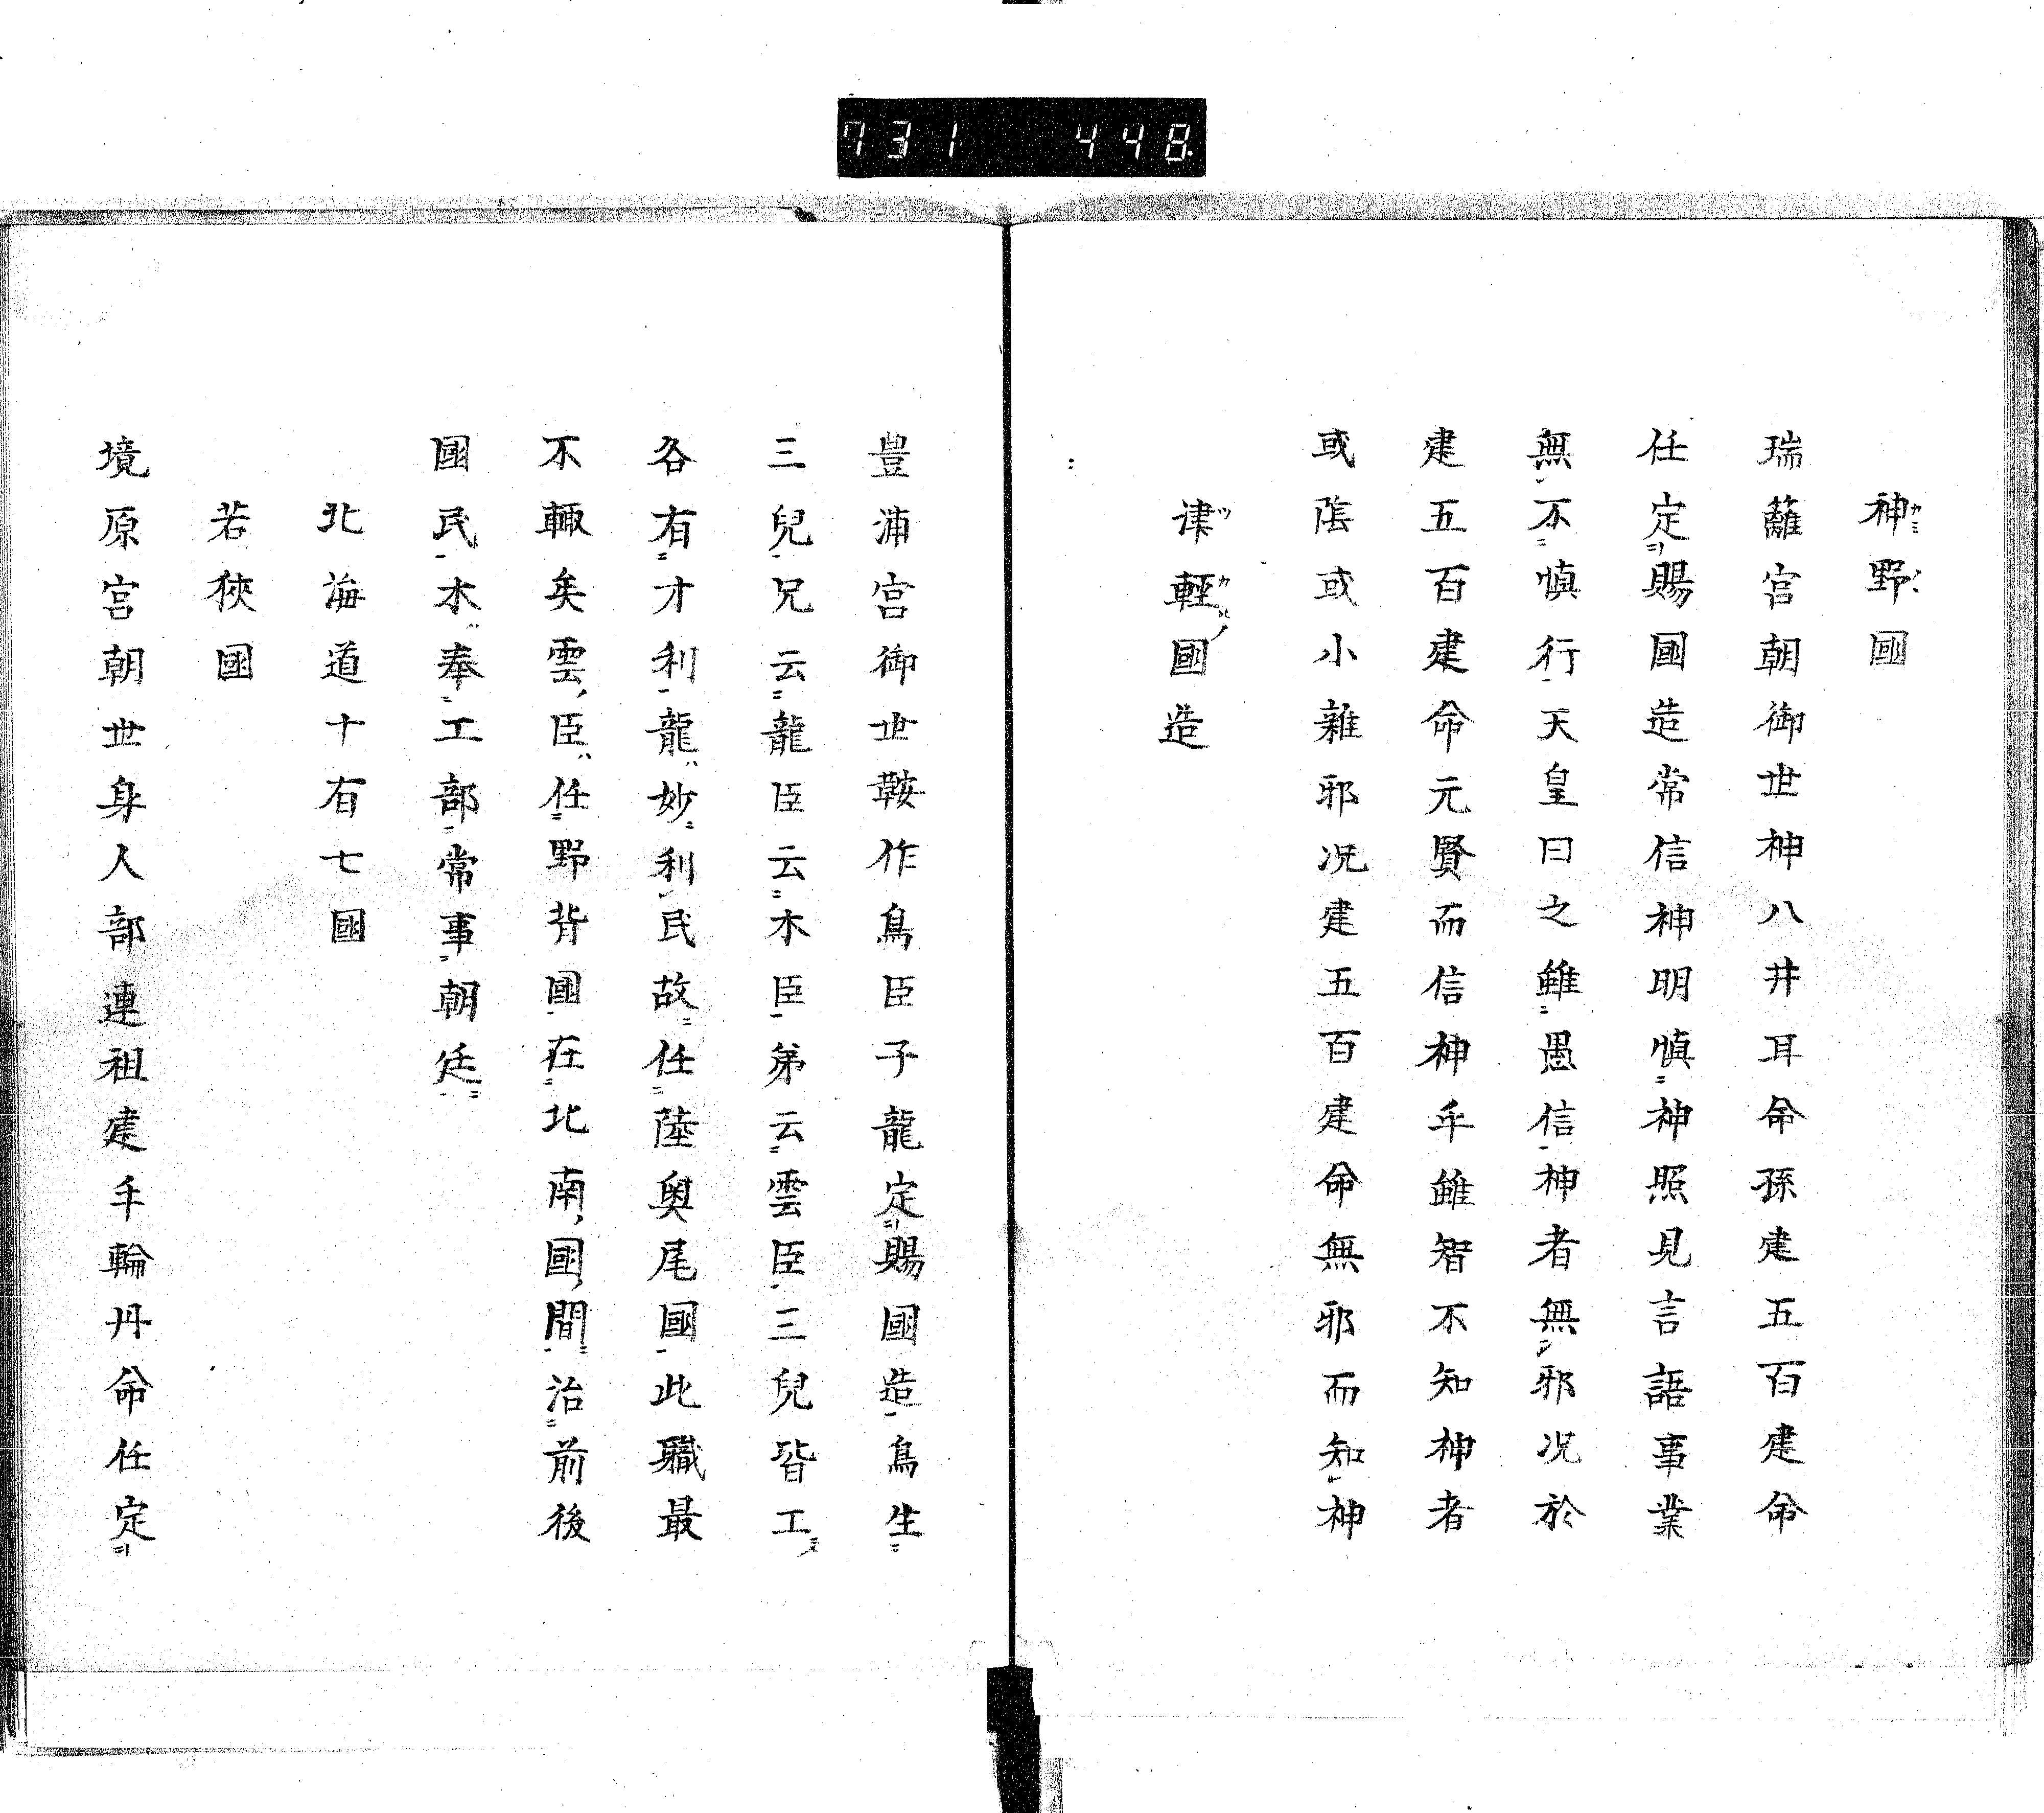 731 448
神野國
瑞籬宮朝御世神八井耳命孫建五百建命
任定賜國造常信神明慎神照見言語事業
無不慎行天皇曰之雖愚信神者無邪况於
建五百建命元賢而信神乎雖智不知神者
或陰或小雜邪况建五百建命無邪而知神
津輕國造
豊浦宮御世鞍作鳥臣子龍定賜國造鳥生
三兒兄云龍臣云木臣弟云雲臣三兒皆工
各有才利龍妙利民故任陸奥尾國此職最
不輙矣雲臣任野背國在北南國間治前後
國民木奉工部常事朝廷
北海道十有七國
若狹國
境原宮朝世身人部連祖建手輪丹命任定